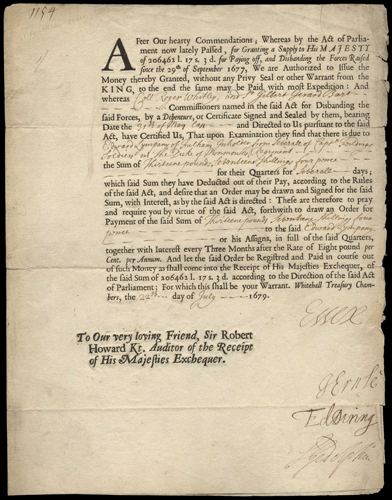 1154
AFter Our hearty Commendations; Whereas by the Act of Parlia-
ment now lately Passed, for Granting a Supply to His MAJESTY
of 206462 l. 17 s. 3 d. for Paying off, and Disbanding the Forces Raised
since the 29th of September 1677, We are Authorized to Issue the
Money thereby Granted, without any Privy Seal or other Warrant from the
KING, to the end the same may be Paid with most Expedition: And
whereas Coll Roger Whitley, and Sr Gilbert Gerrard Bart
Commissioners named in the said Act for Disbanding the
said Forces, by a Debenture, or Certificate Signed and Sealed by them, bearing
Date the 30th of May and Directed to Us pursuant to the said
Act, have Certified Us, That upon Examination they find that there is due to
Edward of Inholder from of Capt
Souldiers of the Duke of Monmouths Regiment
the Sum of Thirteene pounds, seventeene shillings four pence
for their Quarters for Severall days;
which said Sum they have Deducted out of their Pay, according to the Rules
of the said Act, and desire that an Order may be Drawn and Signed for the said
Sum, with Interest, as by the said Act is directed: These are therefore to pray
and require you by virtue of the said Act, forthwith to draw an Order for
Payment of the said Sum of Thirteene pounds Seventeene Shillings four
pence to the said Edward
or his Assigns, in full of the said Quarters,
together with Interest every Three Months after the Rate of Eight pound per
Cent. per Annum. And let the said Order be Registred and Paid in course out
of such Money as shall come into the Receipt of His Majesties Exchequer, of
the said Sum of 206462 l. 17 s. 3 d. according to the Direction of the said Act
of Parliament; For which this shall be your Warrant. Whitehall Treasury Cham-
bers, the 22th day of July 1679.
Essex
To Our very loving Friend, Sir Robert
Howard Kt. Auditor of the Receipt
of His Majesties Exchequer.
J Ernle
Ed Dering
S Godolphin